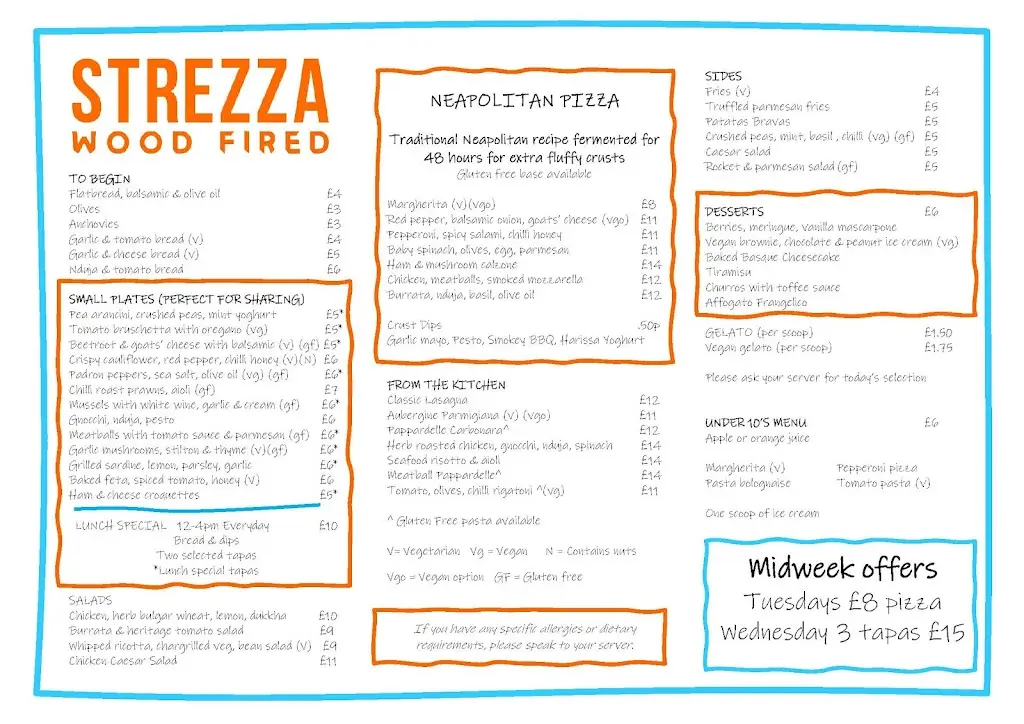 STREZZA
WOOD FIRED
TO BEGIN
Flatbread, balsamic & olive oil £4
Olives £3
Anchovies £3
Garlic & tomato bread (v) £4
Garlic & cheese bread (v) £5
Nduja & tomato bread £6
SMALL PLATES (PERFECT FOR SHARING)
Pea arancini, crushed peas, mint yoghurt £5*
Tomato bruschetta with oregano (vg) £5*
Beetroot & goats' cheese with balsamic (v) (gf) £5*
Crispy cauliflower, red pepper, chilli honey (v)(N) £6
Padron peppers, sea salt, olive oil (vg) (gf) £6*
Chilli roast prawns, aioli (gf) £7
Mussels with white wine, garlic & cream (gf) £6*
Gnocchi, nduja, pesto £6
Meatballs with tomato sauce & parmesan (gf) £6*
Garlic mushrooms, stilton & thyme (v)(gf) £6*
Grilled sardine, lemon, parsley, garlic £6*
Baked feta, spiced tomato, honey (v) £6
Ham & cheese croquettes £5*
LUNCH SPECIAL 12-4pm Everyday £10
Bread & dips
Two selected tapas
*Lunch special tapas
SALADS
Chicken, herb bulgar wheat, lemon, dukkha £10
Burrata & heritage tomato salad £9
Whipped ricotta, chargrilled veg, bean salad (v) £9
Chicken Caesar Salad £11
NEAPOLITAN PIZZA
Traditional Neapolitan recipe fermented for
48 hours for extra fluffy crusts
Gluten free base available
Margherita (v)(vgo) £8
Red pepper, balsamic onion, goats' cheese (vgo) £11
Pepperoni, spicy salami, chilli honey £11
Baby spinach, olives, egg, parmesan £11
Ham & mushroom calzone £14
Chicken, meatballs, smoked mozzarella £12
Burrata, nduja, basil, olive oil £12
Crust Dips .50p
Garlic mayo, Pesto, Smokey BBQ, Harissa Yoghurt
FROM THE KITCHEN
Classic Lasagna £12
Aubergine Parmigiana (v) (vgo) £11
Pappardelle Carbonara^ £12
Herb roasted chicken, gnocchi, nduja, spinach £14
Seafood risotto & aioli £14
Meatball Pappardelle^ £14
Tomato, olives, chilli rigatoni ^(vg) £11
^ Gluten Free pasta available
V= Vegetarian Vg = Vegan N = Contains nuts
Vgo = Vegan option GF = Gluten free
If you have any specific allergies or dietary
requirements, please speak to your server.
SIDES
Fries (v) £4
Truffled parmesan fries £5
Patatas Bravas £5
Crushed peas, mint, basil , chilli (vg) (gf) £5
Caesar salad £5
Rocket & parmesan salad (gf) £5
DESSERTS £6
Berries, meringue, vanilla mascarpone
Vegan brownie, chocolate & peanut ice cream (vg)
Baked Basque Cheesecake
Tiramisu
Churros with toffee sauce
Affogato Frangelico
GELATO (per scoop) £1.50
Vegan gelato (per scoop) £1.75
Please ask your server for today's selection
UNDER 10'S MENU £6
Apple or orange juice
Margherita (v) Pepperoni pizza
Pasta bolognaise Tomato pasta (v)
One scoop of ice cream
Midweek offers
Tuesdays £8 pizza
Wednesday 3 tapas £15